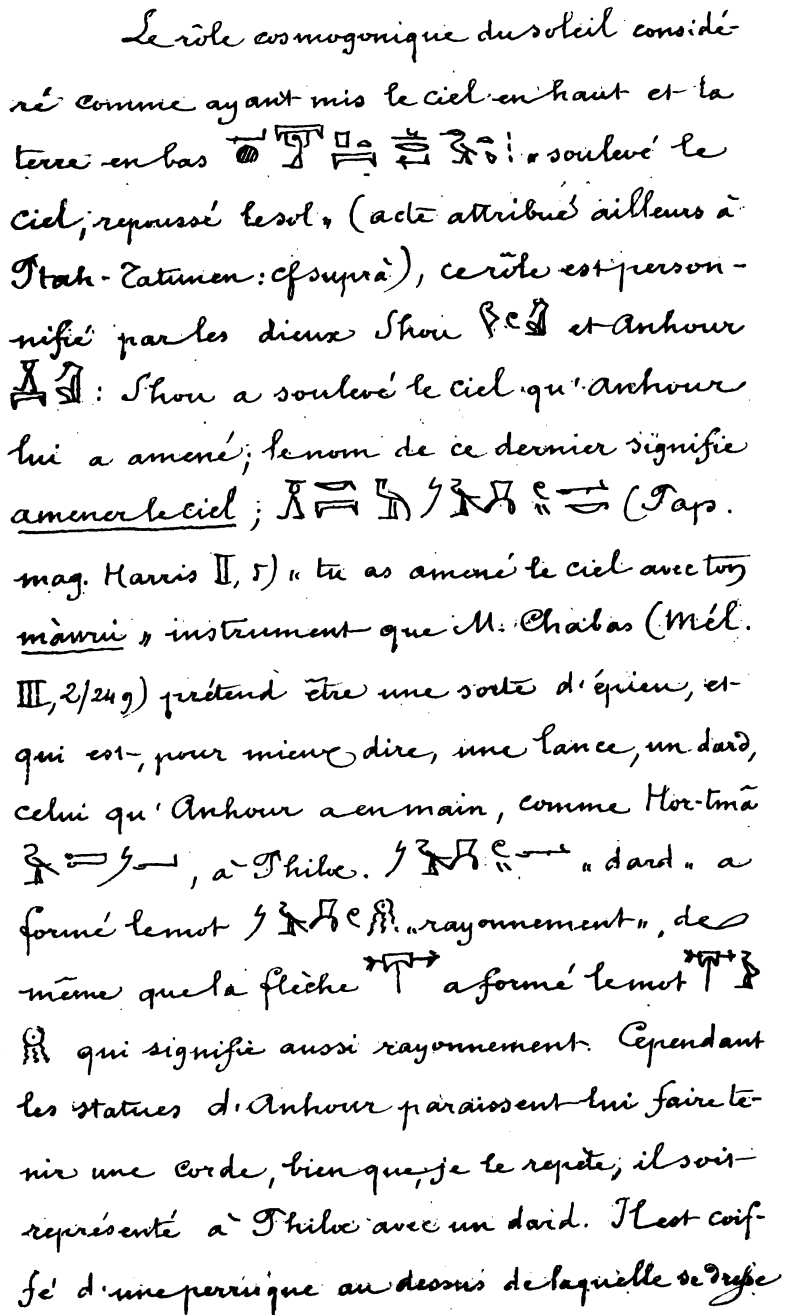 Le rôle cosmogonique du soleil considé-
ré comme ayant mis le ciel en haut et la
terre en bas « soulevé le
ciel, repoussé le sol » (acte attribué ailleurs à
Ptah-Tatunen : cf suprà), ce rôle est person-
nifié par les dieux Shou et Anhour
: Shou a soulevé le ciel qu'Anhour
lui a amené ; le nom de ce dernier signifie
amener le ciel ; (Pap.
mag. Harris II, 5) « tu as amené le ciel avec ton
màurui » instrument que M. Chabas (Mél.
III, 2/249) prétend être une sorte d'épieu, et
qui est, pour mieux dire, une lance, un dard,
celui qu'Anhour a en main, comme Hor-tmâ
, à Philœ. « dard » a
formé le mot « rayonnement », de
même que la flèche a formé le mot
qui signifie aussi rayonnement. Cependant
les statues d'Anhour paraissent lui faire te-
nir une corde, bien que, je le repète, il soit
représenté à Philœ avec un dard. Il est coif-
fé d'une perruque au dessus de laquelle se dresse